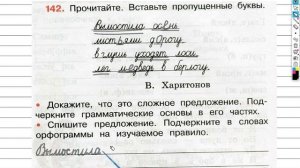 142. Прочитайте. Вставьте пропущенные буквы.
Вымостила осень
листьями дорогу
в глушь уходят лоси
лёг медведь в берлогу
В. Харитонов
• Докажите, что это сложное предложение. Под-
черкните грамматические основы в его частях.
• Спишите предложение. Подчеркните в словах
орфограммы на изучаемое правило.
Вымостила